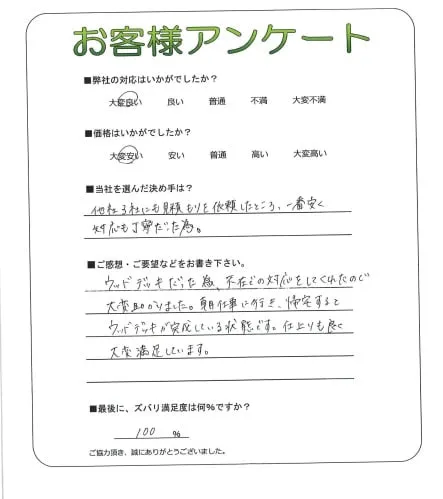 お客様アンケート
■弊社の対応はいかがでしたか?
大変良い 良い 普通 不満 大変不満
■価格はいかがでしたか?
大変安い 安い 普通 高い 大変高い
■当社を選んだ決め手は?
他社3社にも見積もりを依頼したところ、一番安く
対応も丁寧だった為。
■ご感想・ご要望などをお書き下さい。
ウッドデッキだった為、不在での対応をしてくれたので
大変助かりました。朝仕事に行き、帰宅すると
ウッドデッキが完成している状態です。仕上りも良く
大変満足しています。
■最後に、ズバリ満足度は何%ですか?
100 %
ご協力頂き、誠にありがとうございました。